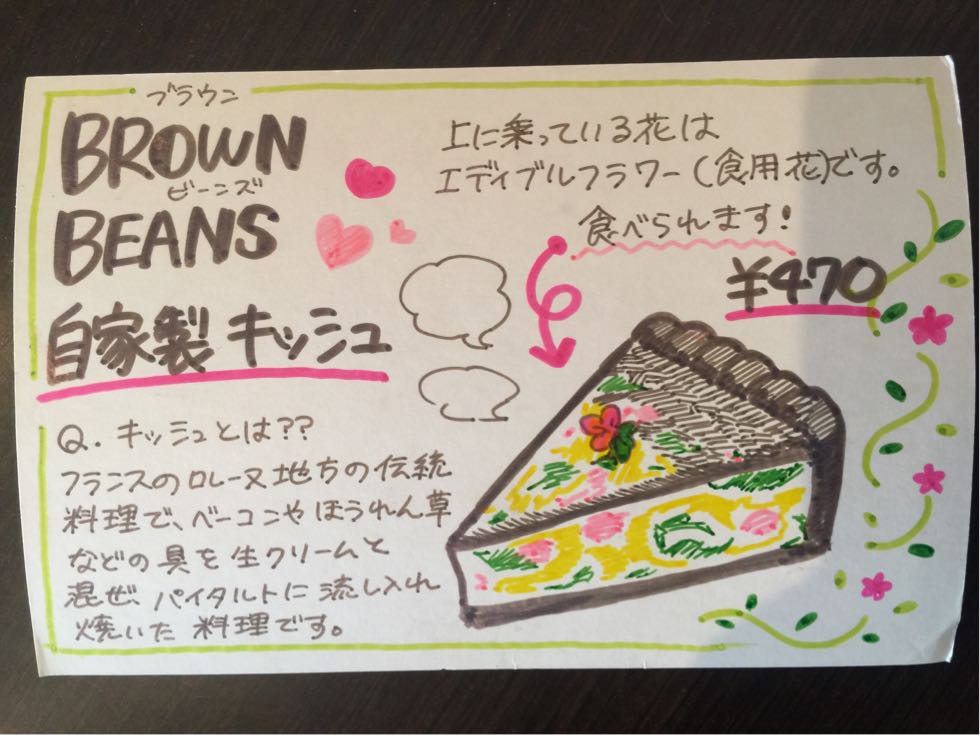 ブラウン
BROWN
ビーンズ
BEANS
自家製 キッシュ
上に乗っている花は
エディブルフラワー(食用花)です。
食べられます!
¥470
Q. キッシュとは??
フランスのロレーヌ地方の伝統
料理で、ベーコンやほうれん草
などの具を生クリームと
混ぜ、パイタルトに流し入れ
焼いた料理です。